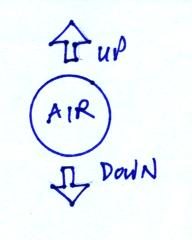 UP
AIR
DOWN